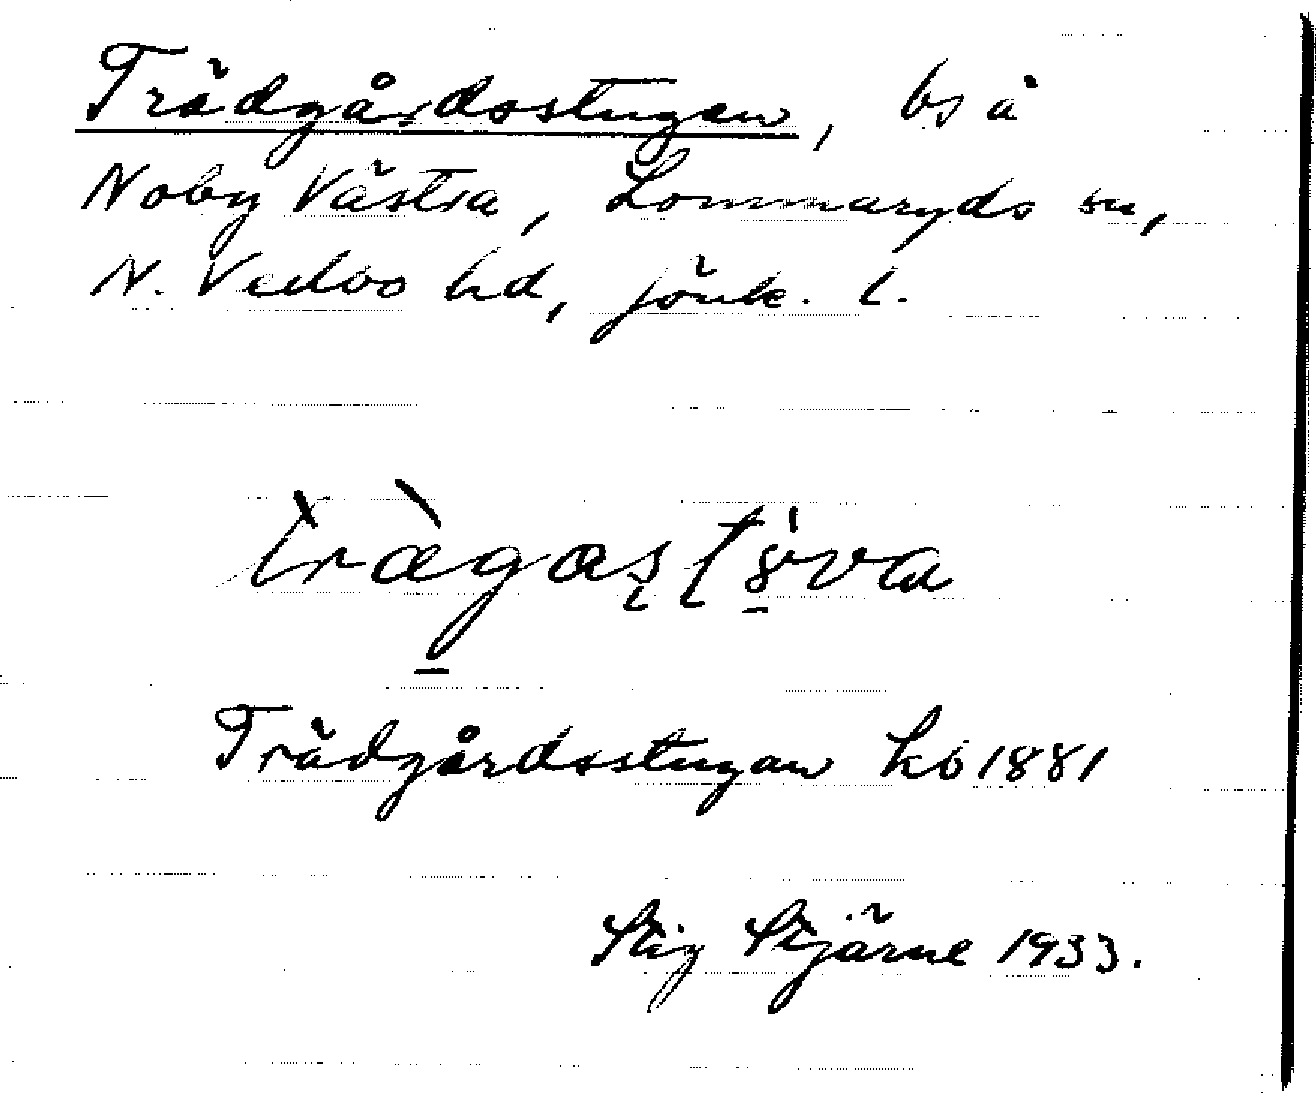 Trädgårdsstugan, bs å
Noby Västra, Lommaryds sn,
N. Vedbo hd, Jönk. l.
Trädgårdsstugan Lb 1881
Stig Stjärne 1933.